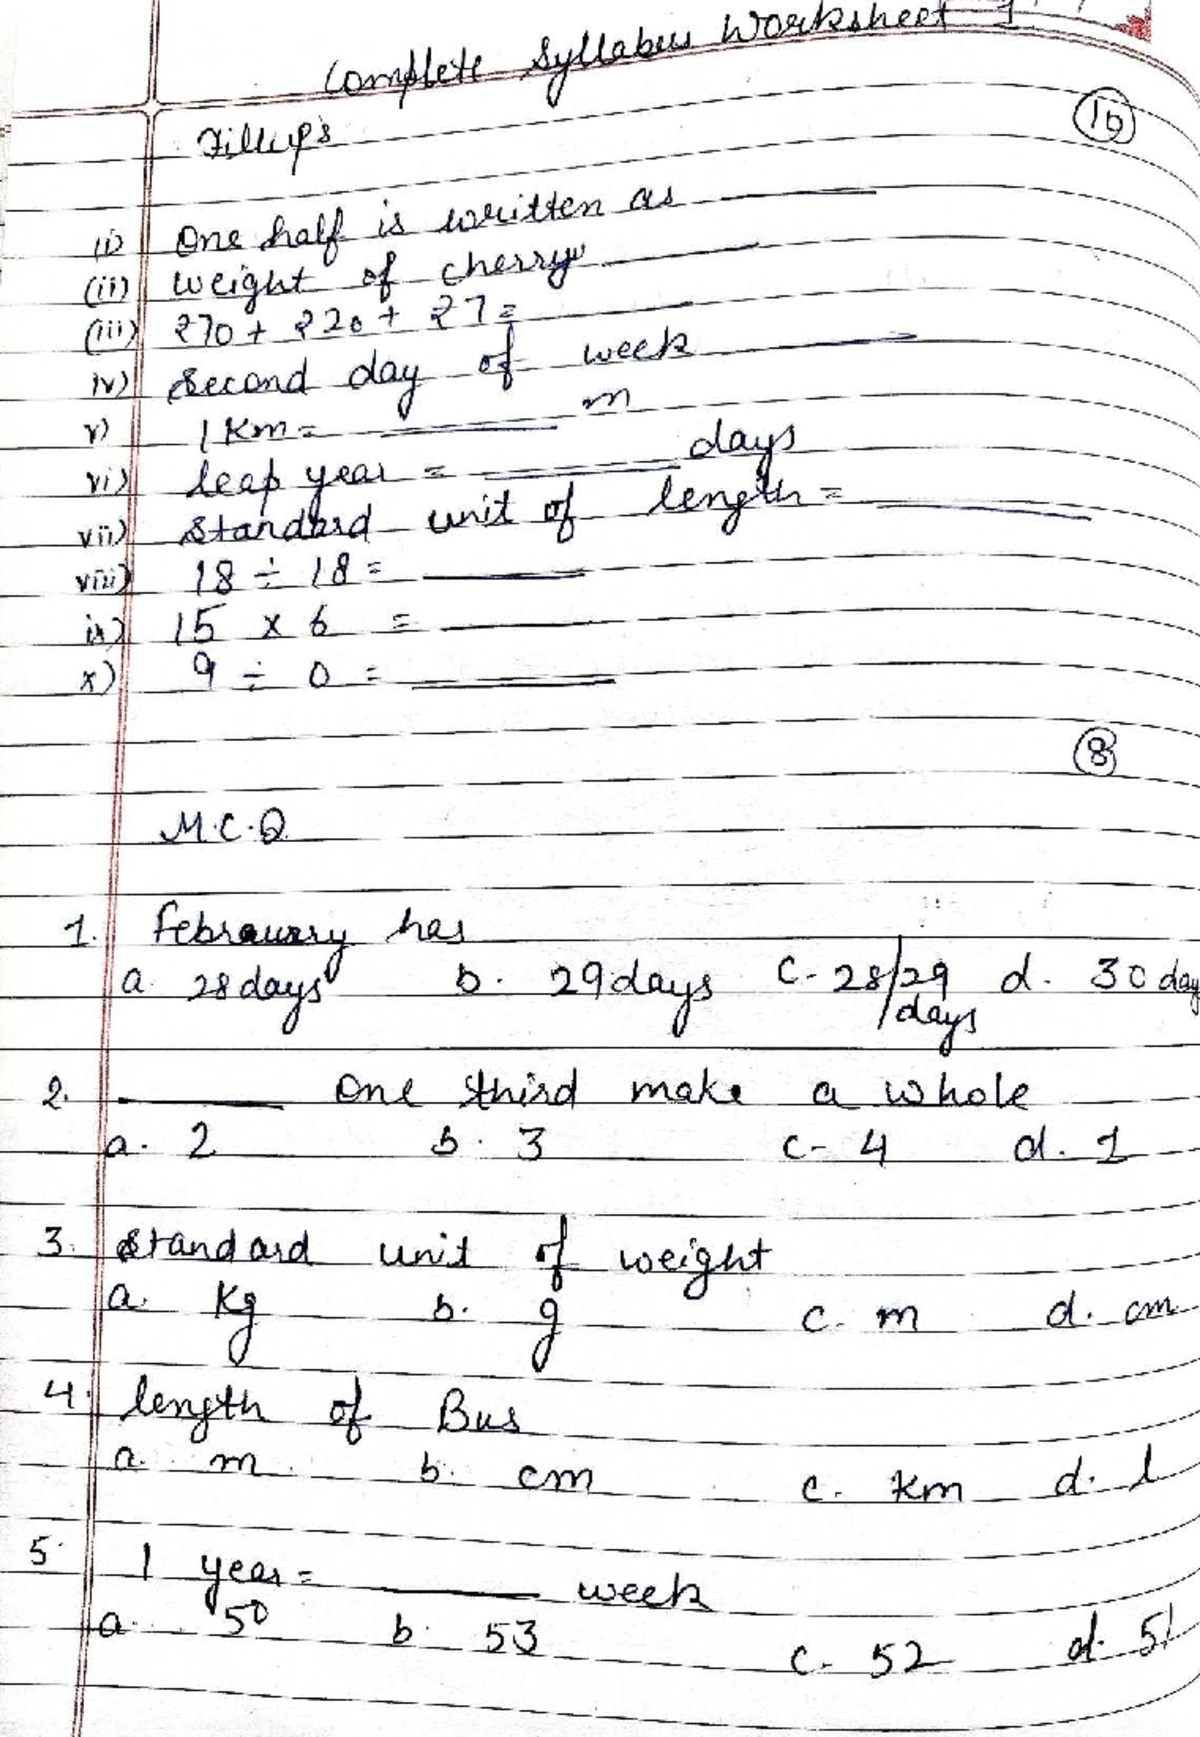 Complete Syllabus Worksheet - 1
Fillups
10
(i) One half is written as ______
(ii) weight of cherry ______
(iii) ₹70 + ₹20 + ₹7 = ______
iv) Second day of week ______
v) 1 Km = ______ m
vi) leap year = ______ days
vii) Standard unit of length = ______
viii) 18 ÷ 18 = ______
ix) 15 × 6 = ______
x) 9 ÷ 0 = ______
8
M.C.Q
1. Febrauary has
a. 28 days b. 29 days c- 28/29 days d. 30 day
2. ______ One third make a whole
a. 2 b. 3 c- 4 d. 1
3. Standard unit of weight
a. Kg b. g c. m d. cm
4. length of Bus
a. m b. cm c. km d. l
5. 1 year = ______ week
a. 50 b. 53 c. 52 d. 51